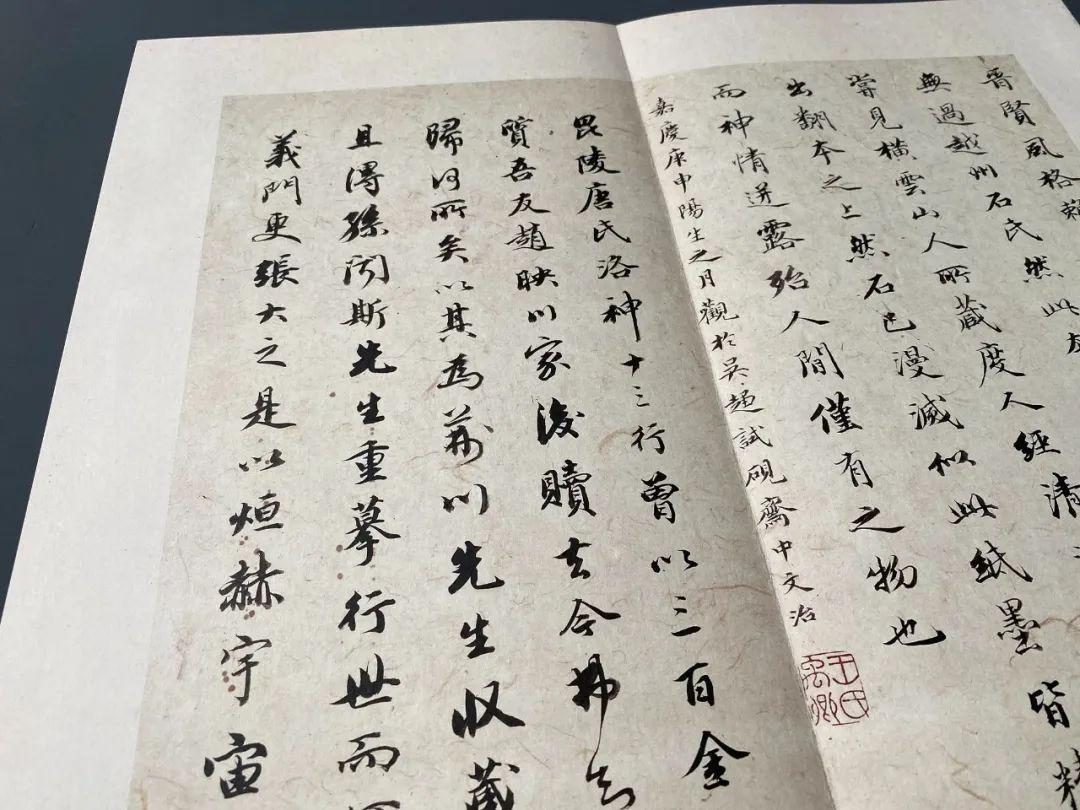 晉賢風格賴
無過越州石氏然此
嘗見橫雲山人所藏度人經清
出翻本之上然石已漫滅似此紙墨皆精
而神情迸露殆人間僅有之物也
嘉慶庚申陽生之月觀於吳趨試硯齋中文治
王氏禹卿
毘陵唐氏洛神十三行曾以三百金
質吾友趙映川家後贖去今弗知
歸何所矣以其為荊川先生収藏
且得孫聞斯先生重摹行世而
義門更張大之是以烜赫宇宙